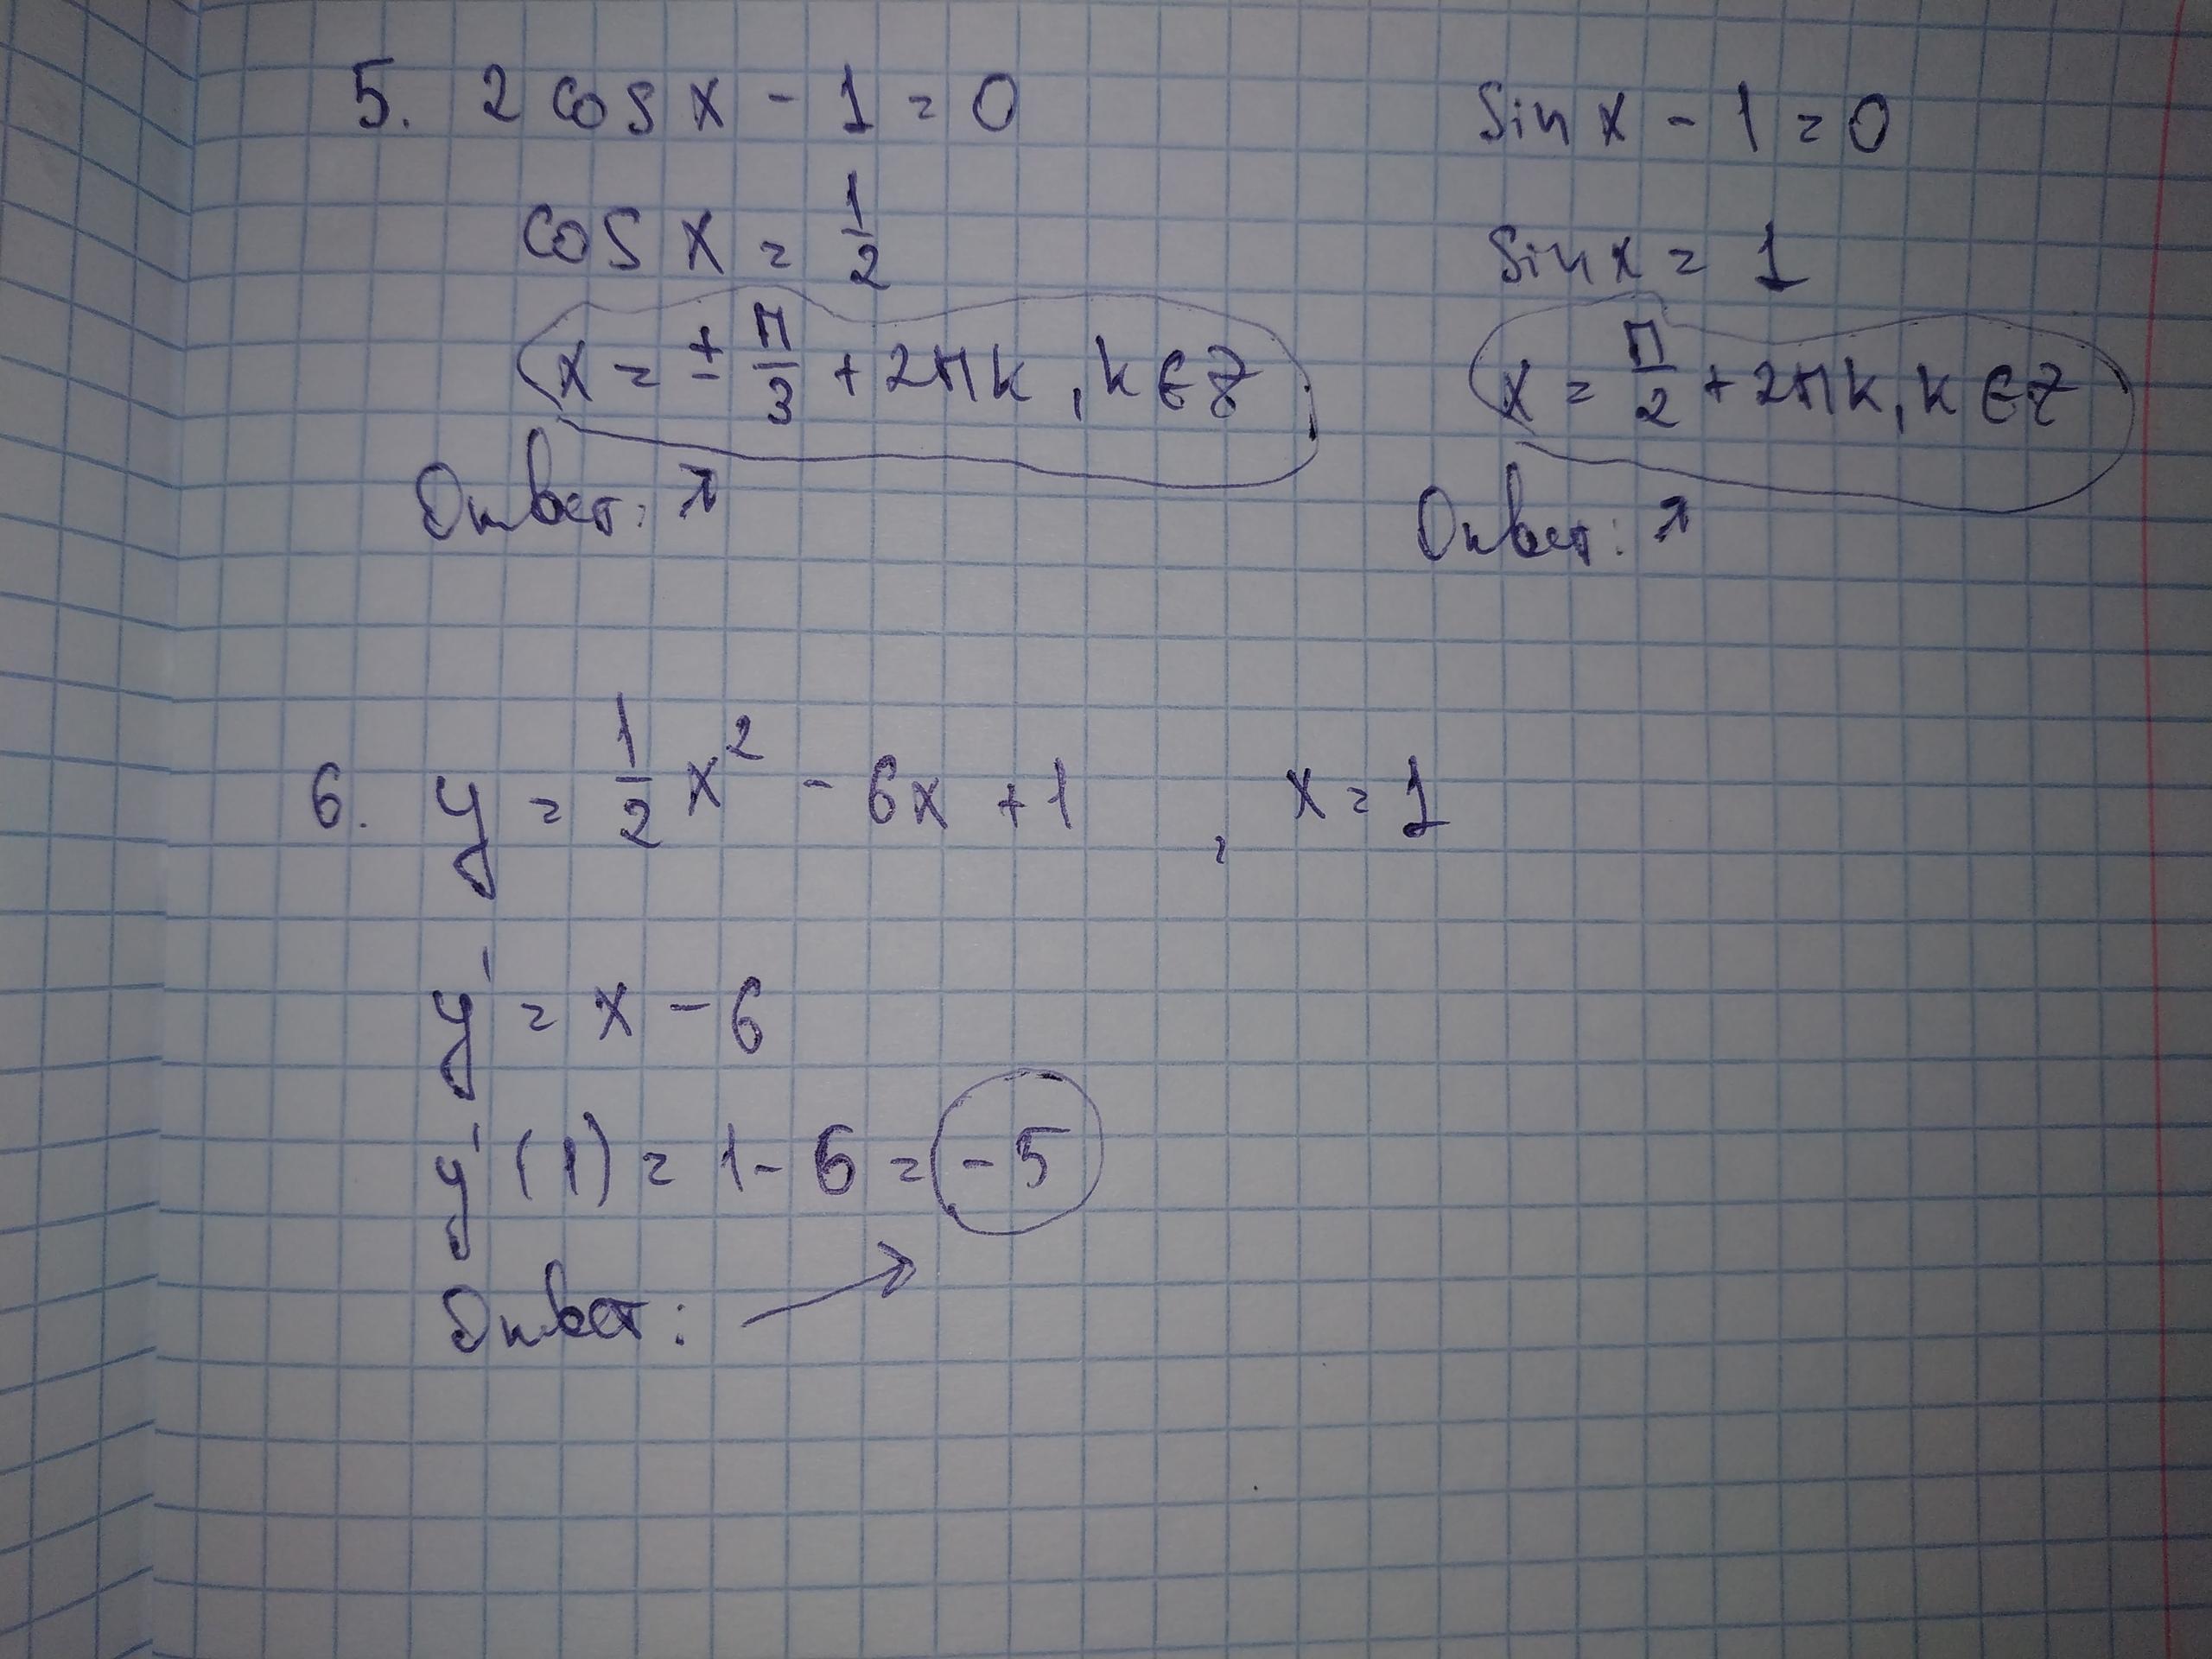 5. 2 cos x - 1 = 0
cos x = 1/2
x = ± π/3 + 2πk, k ∈ Z
Ответ: ↗
sin x - 1 = 0
sin x = 1
x = π/2 + 2πk, k ∈ Z
Ответ: ↗
6. y = 1/2 x² - 6x + 1 , x = 1
y' = x - 6
y'(1) = 1 - 6 = -5
Ответ: →